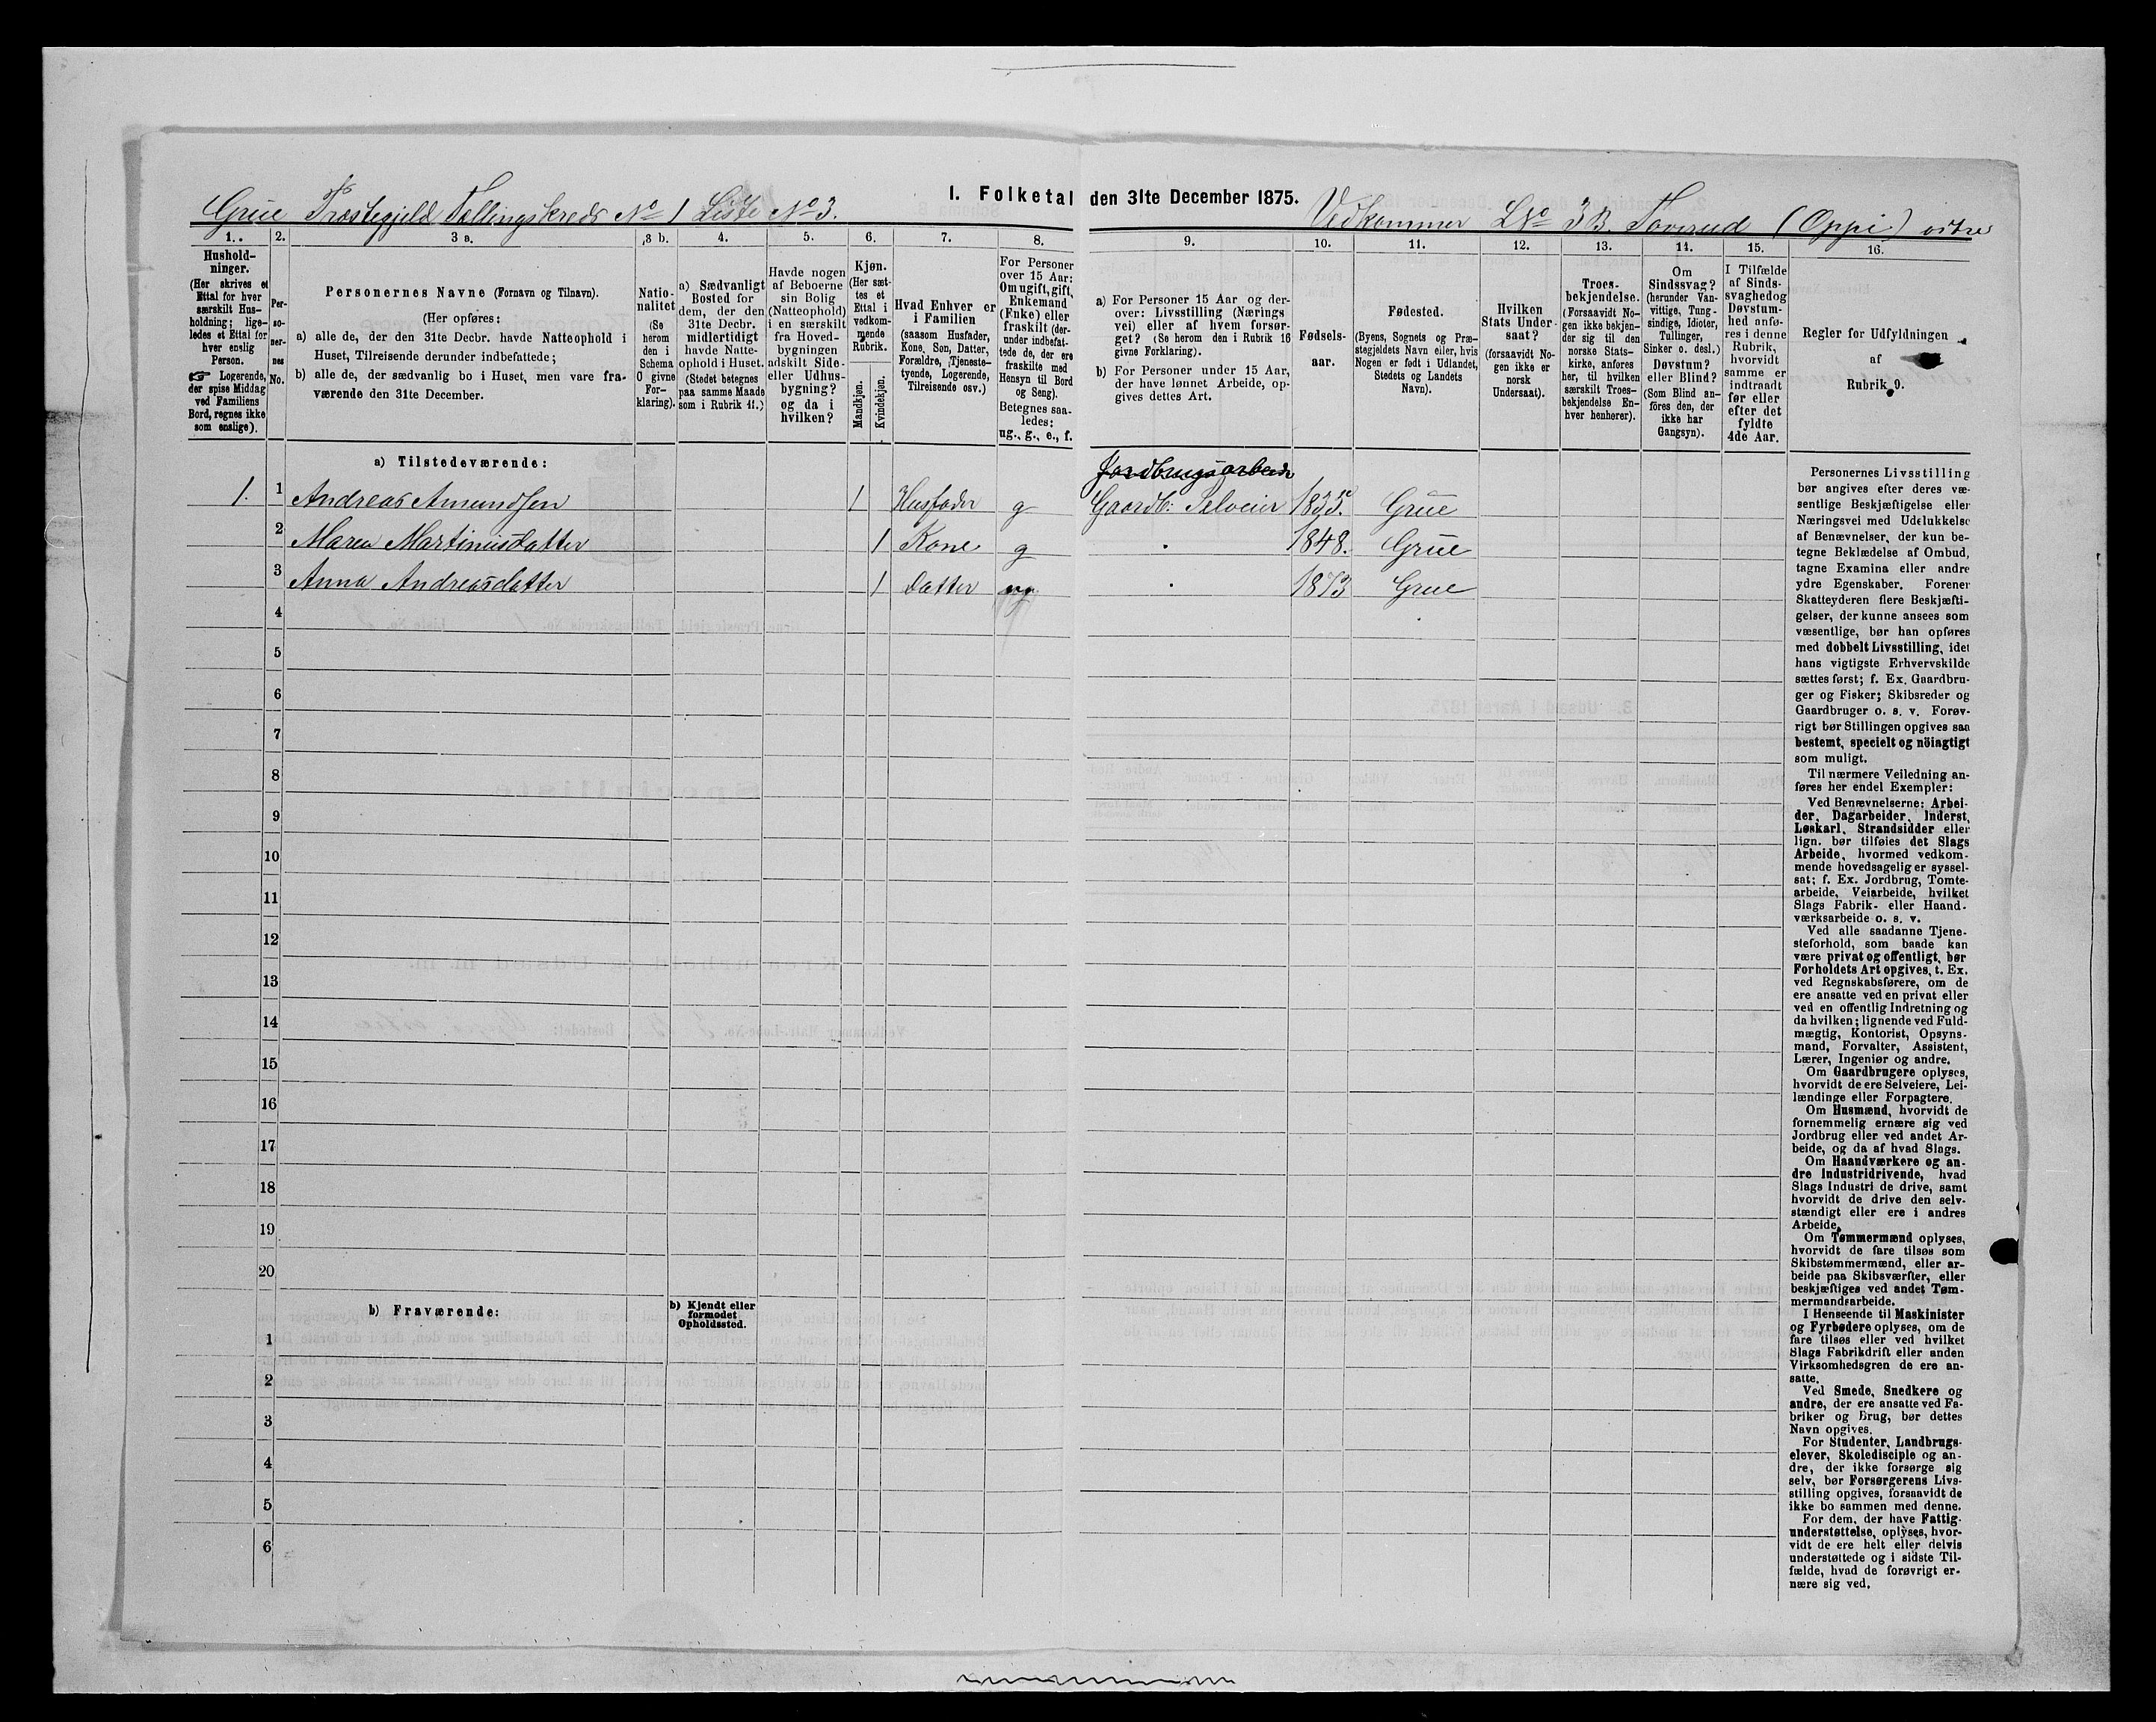 I. Folketal den 31te December 1875.
Grue Præstegjeld Tællingskreds No 1 Liste No 3.
Vedkommer LNo 3 B. Toverud (Oppi) østre
1. 2. 3 a. 3 b. 4. 5. 6. 7. 8. 9. 10. 11. 12. 13. 14. 15. 16.
Hushold-
ninger.
(Her skrives et
Ettal for hver
særskilt Hus-
holdning; lige-
ledes et Ettal for
hver enslig
Person.
☞ Logerende,
der spise Middag
ved Familiens
Bord, regnes ikke
som enslige).
Per-
so-
ner-
nes
No.
Personernes Navne (Fornavn og Tilnavn).
(Her opføres:
a) alle de, der den 31te Decbr. havde Natteophold i
Huset, Tilreisende derunder indbefattede;
b) alle de, der sædvanlig bo i Huset, men vare fra-
værende den 31te December.
Natio-
nalitet
(Se
herom
den i
Schema
O givne
For-
klaring).
a) Sædvanligt
Bosted for
dem, der den
31te Decbr.
midlertidigt
havde Natte-
ophold i Huset.
(Stedet betegnes
paa samme Maade
som i Rubrik 11.)
Havde nogen
af Beboerne
sin Bolig
(Natteophold)
i en særskilt
fra Hoved-
bygningen
adskilt Side-
eller Udhus-
bygning?
og da i
hvilken?
Kjøn.
(Her sæt-
tes et
Ettal i
vedkom-
mende
Rubrik.
Mandkjøn.
Kvindekjøn.
Hvad Enhver er
i Familien
(saasom Husfader,
Kone, Søn, Datter,
Forældre, Tjeneste-
tyende, Logerende,
Tilreisende osv.)
For Personer
over 15 Aar:
Om ugift, gift,
Enkemand
(Enke) eller
fraskilt (der-
under indbefat-
tede de, der ere
fraskilte med
Hensyn til Bord
og Seng).
Betegnes saa-
ledes:
ug., g., e., f.
a) For Personer 15 Aar og der-
over: Livsstilling (Nærings
vei) eller af hvem forsør-
get? (Se herom den i Rubrik 16
givne Forklaring).
b) For Personer under 15 Aar,
der have lønnet Arbeide, op-
gives dettes Art.
Fødsels-
aar.
Fødested.
(Byens, Sognets og Præ-
stegjeldets Navn eller, hvis
Nogen er født i Udlandet,
Stedets og Landets
Navn).
Hvilken
Stats Under-
saat?
(forsaavidt No-
gen ikke er
norsk
Undersaat).
Troes-
bekjendelse.
(Forsaavidt No-
gen ikke bekjen-
der sig til den
norske Stats-
kirke, anføres
her, til hvilken
særskilt Troes-
bekjendelse En-
hver henhører).
Om
Sindssvag?
(herunder Van-
vittige, Tung-
sindige, Idioter,
Tullinger,
Sinker o. desl.)
Døvstum?
eller Blind?
(Som Blind an-
føres den, der
ikke har
Gangsyn).
I Tilfælde
af Sinds-
svaghedog
Døvstum-
hed anfø-
res i denne
Rubrik,
hvorvidt
samme er
indtraadt
før eller
efter det
fyldte
4de Aar.
Regler for Udfyldningen
af
Rubrik 9.
a) Tilstedeværende:
Jordbrugsarbeide
1. 1 Andreas Amundsen 1 Husfader g Gaardb: Selveier 1835. Grue
2 Maren Martinusdatter 1 Kone g 1848. Grue
3 Anna Andreasdatter 1 Datter ug 1873 Grue
4
5
6
7
8
9
10
11
12
13
14
15
16
17
18
19
20
b) Fraværende:
b) Kjendt eller
formodet
Opholdssted.
1
2
3
4
5
6
Personernes Livsstilling
bør angives efter deres væ-
sentlige Beskjæftigelse eller
Næringsvei med Udelukkelse
af Benævnelser, der kun be-
tegne Beklædelse af Ombud,
tagne Examina eller andre
ydre Egenskaber. Forener
Skatteyderen flere Beskjæfti-
gelser, der kunne ansees som
væsentlige, bør han opføres
med dobbelt Livsstilling, idet
hans vigtigste Erhvervskilde
sættes først; f. Ex. Gaardbru-
ger og Fisker; Skibsreder og
Gaardbruger o. s. v. Forøv-
rigt bør Stillingen opgives saa
bestemt, specielt og nöiagtigt
som muligt.
Til nærmere Veiledning an-
føres her endel Exempler:
Ved Benævnelserne: Arbei-
der, Dagarbeider, Inderst,
Løskarl, Strandsidder eller
lign. bør tilføies det Slags
Arbeide, hvormed vedkom-
mende hovedsagelig er syssel-
sat; f. Ex. Jordbrug, Tomte-
arbeide, Veiarbeide, hvilket
Slags Fabrik- eller Haand-
værksarbeide o. s. v.
Ved alle saadanne Tjene-
steforhold, som baade kan
være privat og offentligt, bør
Forholdets Art opgives, t. Ex.
ved Regnskabsførere, om de
ere ansatte ved en privat eller
ved en offentlig Indretning og
da hvilken; lignende ved Fuld-
mægtig, Kontorist, Opsyns-
mand, Forvalter, Assistent,
Lærer, Ingeniør og andre.
Om Gaardbrugere oplyses,
hvorvidt de ere Selveiere, Lei-
lændinge eller Forpagtere.
Om Husmænd, hvorvidt de
fornemmelig ernære sig ved
Jordbrug eller ved andet Ar-
beide, og da af hvad Slags.
Om Haandværkere og an-
dre Industridrivende, hvad
Slags Industri de drive, samt
hvorvidt de drive den selv-
stændigt eller ere i andres
Arbeide.
Om Tømmermænd oplyses,
hvorvidt de fare tilsøs som
Skibstømmermænd, eller ar-
beide paa Skibsværfter, eller
beskjæftiges ved andet Tøm-
mermandsarbeide.
I Henseende til Maskinister
og Fyrbødere oplyses, om de
fare tilsøs eller ved hvilket
Slags Fabrikdrift eller anden
Virksomhedsgren de ere an-
satte.
Ved Smede, Snedkere og
andre, der ere ansatte ved Fa-
briker og Brug, bør dettes
Navn opgives.
For Studenter, Landbrugs-
elever, Skoledisciple og an-
dre, der ikke forsørge sig
selv, bør Forsørgerens Livs-
stilling opgives, forsaavidt de
ikke bo sammen med denne.
For dem, der have Fattig-
understøttelse, oplyses, hvor-
vidt de ere helt eller delvis
understøttede og i sidste Til-
fælde, hvad de forøvrigt er-
nære sig ved.